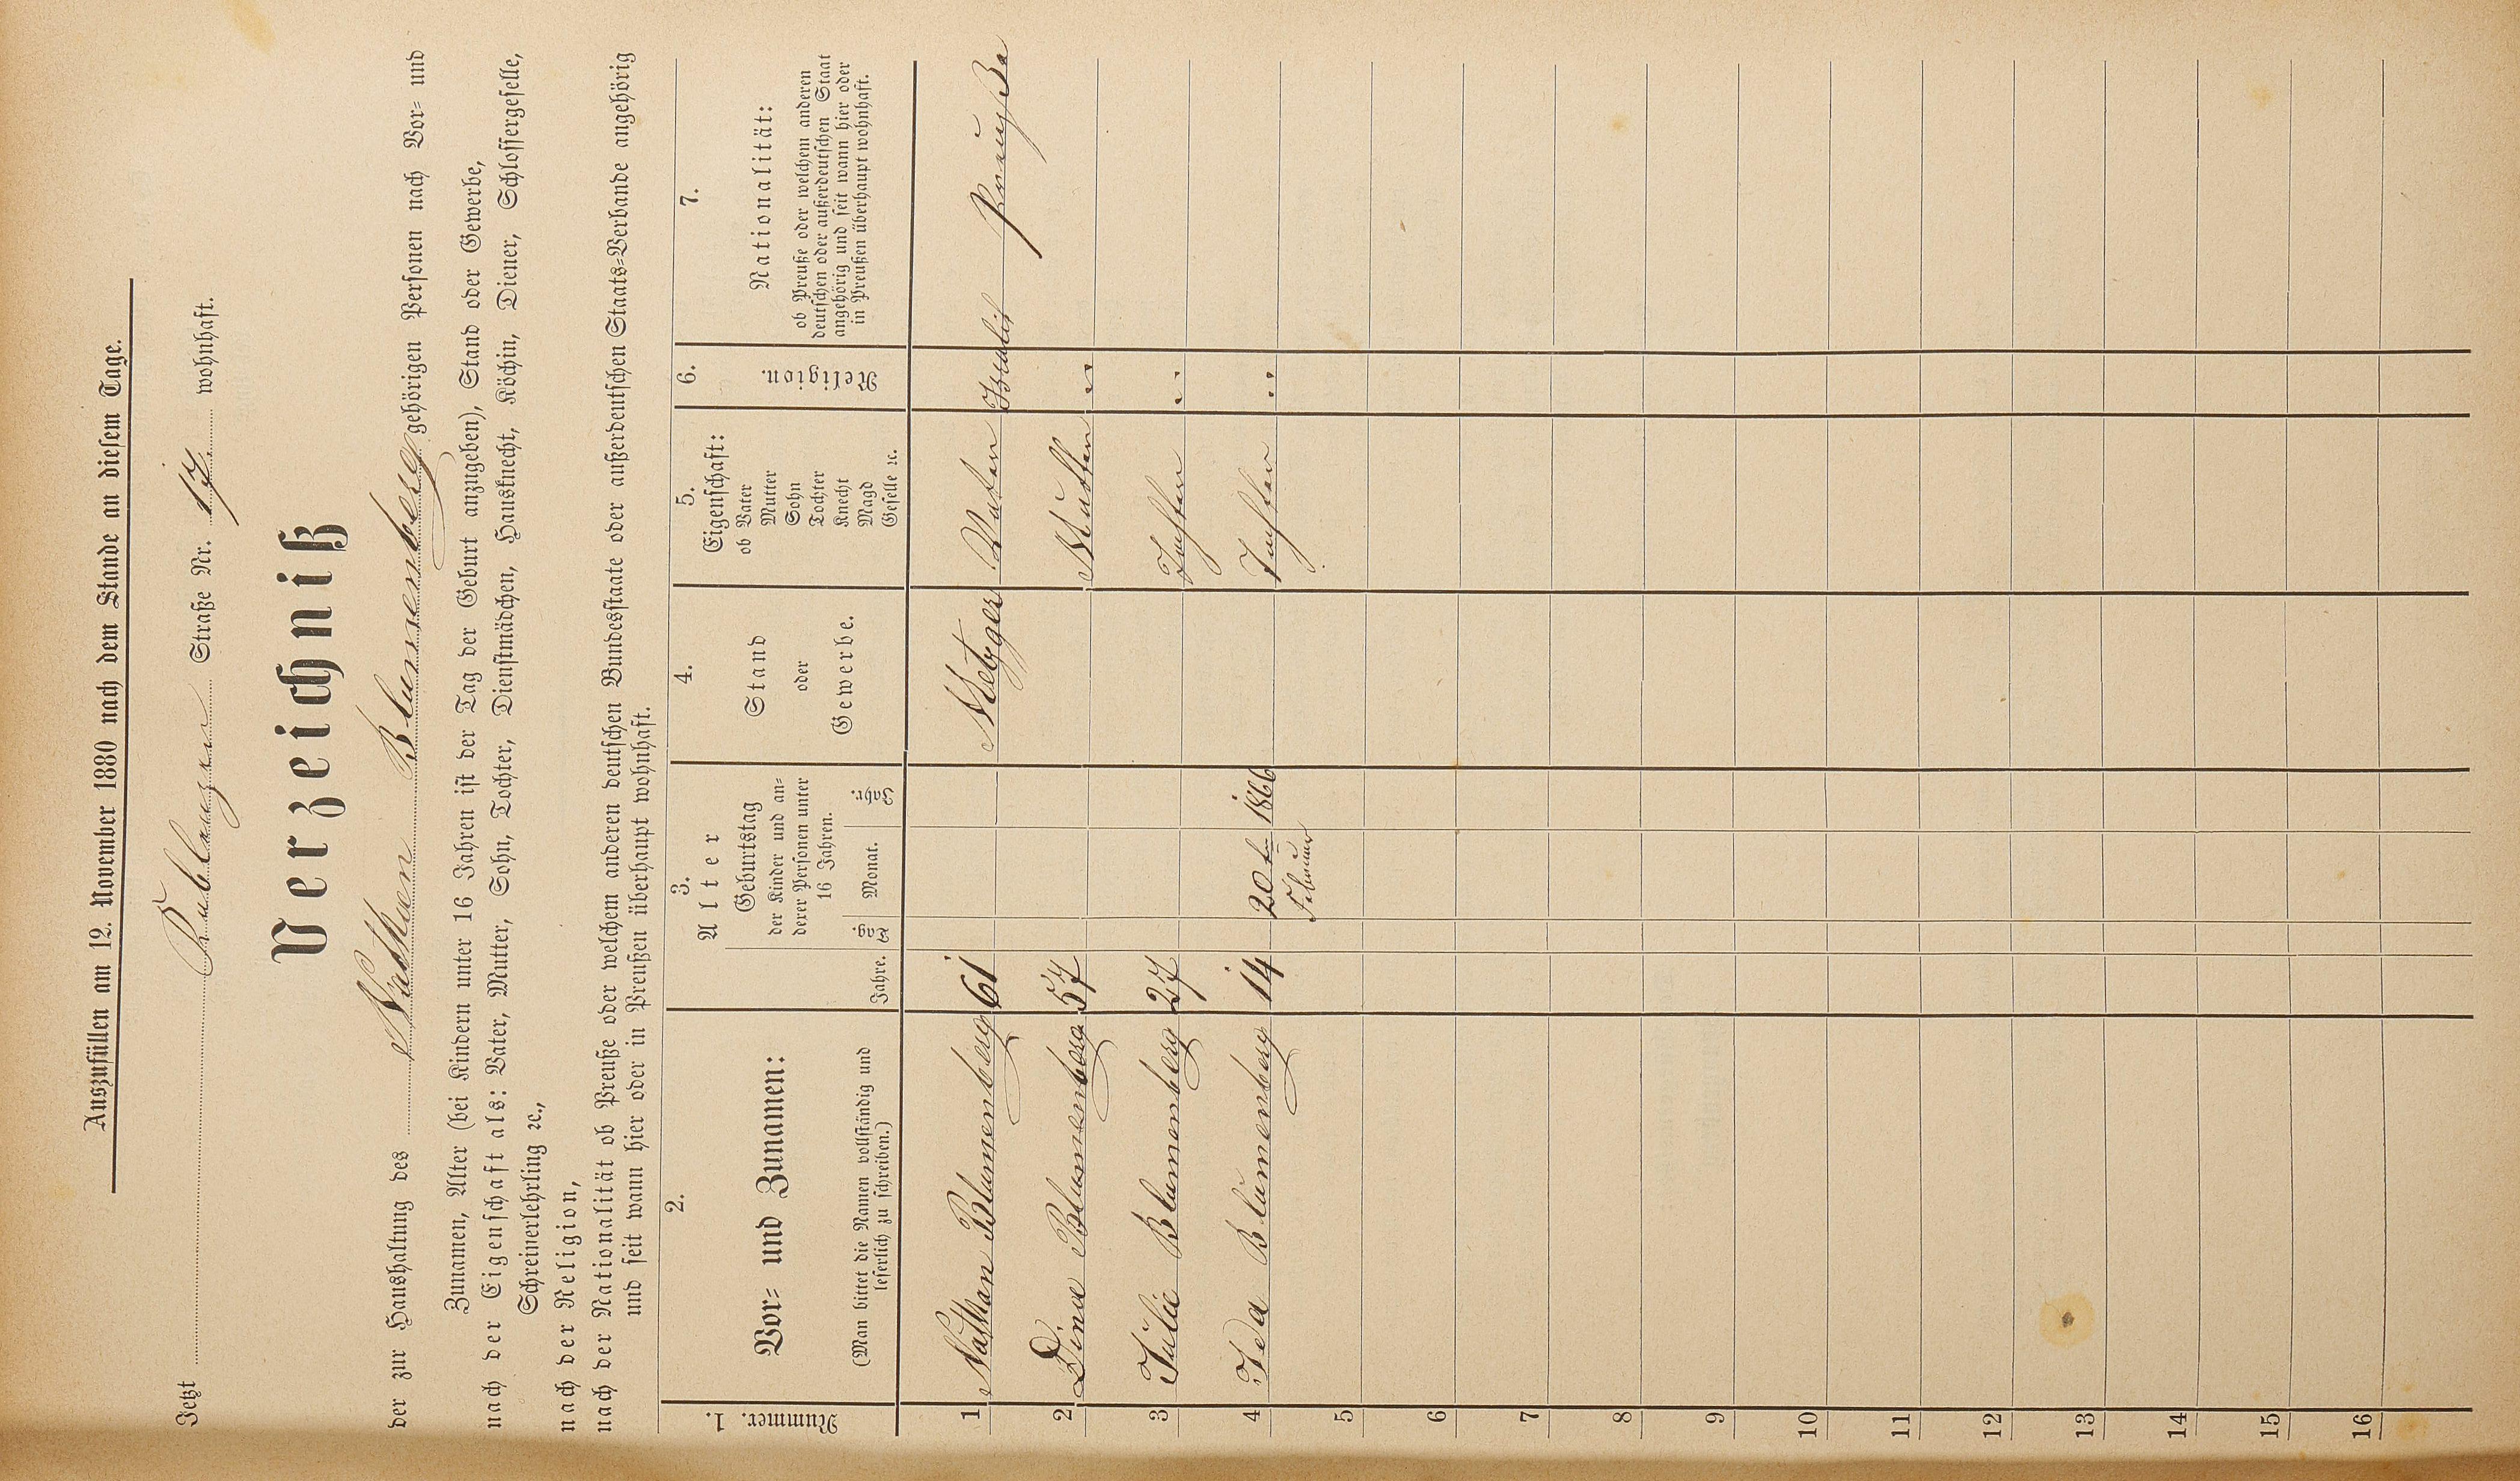 Auszufüllen am 12. November 1880 nach dem Stande an diesem Tage.
Jetzt Straße Nr. 17. wohnhaft.
Verzeichniß
der zur Haushaltung des Nathan Blumenberg gehörigen Personen nach Vor- und
Zunamen, Alter (bei Kindern unter 16 Jahren ist der Tag der Geburt anzugeben), Stand oder Gewerbe,
nach der Eigenschaft als: Vater, Mutter, Sohn, Tochter, Dienstmädchen, Hausknecht, Köchin, Diener, Schlossergeselle,
Schreinerlehrling ꝛc.,
nach der Religion,
nach der Nationalität ob Preuße oder welchem anderen deutschen Bundesstaate oder außerdeutschen Staats-Verbande angehörig
und seit wann hier oder in Preußen überhaupt wohnhaft.
1.
Nummer.
2.
Vor- und Zunamen:
(Man bittet die Namen vollständig und
leserlich zu schreiben.)
3.
Alter
Jahre.
Geburtstag
der Kinder und an-
derer Personen unter
16 Jahren.
Tag.
Monat.
Jahr.
4.
Stand
oder
Gewerbe.
5.
Eigenschaft:
ob Vater
Mutter
Sohn
Tochter
Knecht
Magd
Geselle ꝛc.
6.
Religion.
7.
Nationalität:
ob Preuße oder welchem anderen
deutschen oder außerdeutschen Staat
angehörig und seit wann hier oder
in Preußen überhaupt wohnhaft.
1 Nathan Blumenberg 61 Metzger Vater Israelit Preuße
2 Dina Blumenberg 57 Mutter "
3 Julie Blumenberg 27 Tochter "
4 Ida Blumenberg 14 20ten Februar 1866 Tochter "
5
6
7
8
9
10
11
12
13
14
15
16